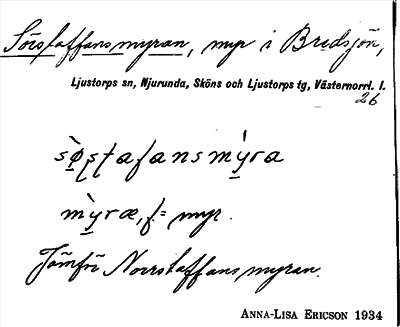 Sörstaffansmyran, myr i Bredsjön,
Ljustorps sn, Njurunda, Sköns och Ljustorps tg, Västernorrl. l.
26
sø̀ʂʈafansmỳra
mỳræ, f. = myr.
Jämför Norrstaffansmyran.
ANNA-LISA ERICSON 1934